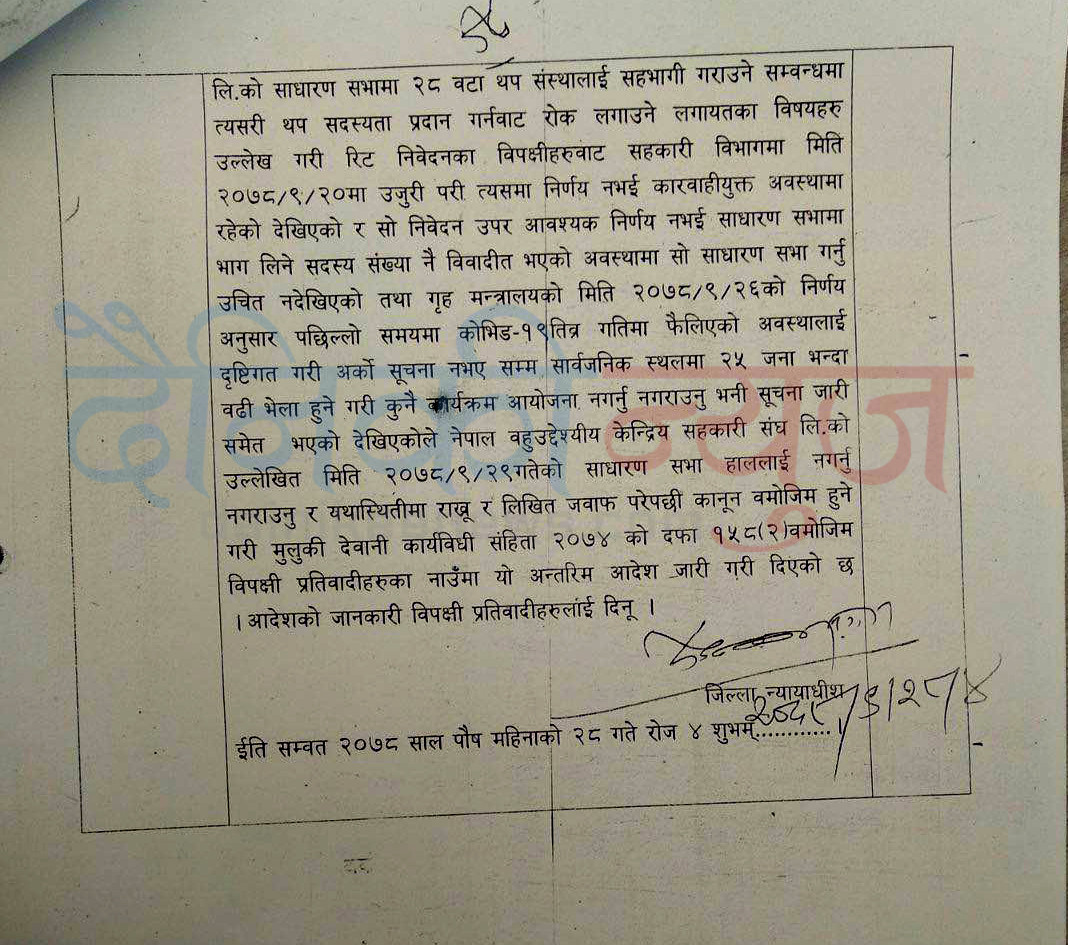 लि.को साधारण सभामा २८ वटा थप संस्थालाई सहभागी गराउने सम्वन्धमा
त्यसरी थप सदस्यता प्रदान गर्नवाट रोक लगाउने लगायतका विषयहरु
उल्लेख गरी रिट निवेदनका विपक्षीहरुवाट सहकारी विभागमा मिति
२०७८/९/२०मा उजुरी परी त्यसमा निर्णय नभई कारवाहीयुक्त अवस्थामा
रहेको देखिएको र सो निवेदन उपर आवश्यक निर्णय नभई साधारण सभामा
भाग लिने सदस्य संख्या नै विवादीत भएको अवस्थामा सो साधारण सभा गर्नु
उचित नदेखिएको तथा गृह मन्त्रालयको मिति २०७८/९/२६को निर्णय
अनुसार पछिल्लो समयमा कोभिड-१९तिव्र गतिमा फैलिएको अवस्थालाई
दृष्टिगत गरी अर्को सूचना नभए सम्म सार्वजनिक स्थलमा २५ जना भन्दा
वढी भेला हुने गरी कुनै कार्यक्रम आयोजना नगर्नु नगराउनु भनी सूचना जारी
समेत भएको देखिएकोले नेपाल वहुउद्देश्यीय केन्द्रिय सहकारी संघ लि.को
उल्लेखित मिति २०७८/९/२९गतेको साधारण सभा हाललाई नगर्नु
नगराउनु र यथास्थितीमा राख्नू र लिखित जवाफ परेपछी कानून वमोजिम हुने
गरी मुलुकी देवानी कार्यविधी संहिता २०७४ को दफा १५८(२)वमोजिम
विपक्षी प्रतिवादीहरुका नाउँमा यो अन्तरिम आदेश जारी गरी दिएको छ
। आदेशको जानकारी विपक्षी प्रतिवादीहरुलाई दिनू ।
जिल्ला न्यायाधीश
ईति सम्वत २०७८ साल पौष महिनाको २८ गते रोज ४ शुभम्............ ।
दैनिकी न्यूज